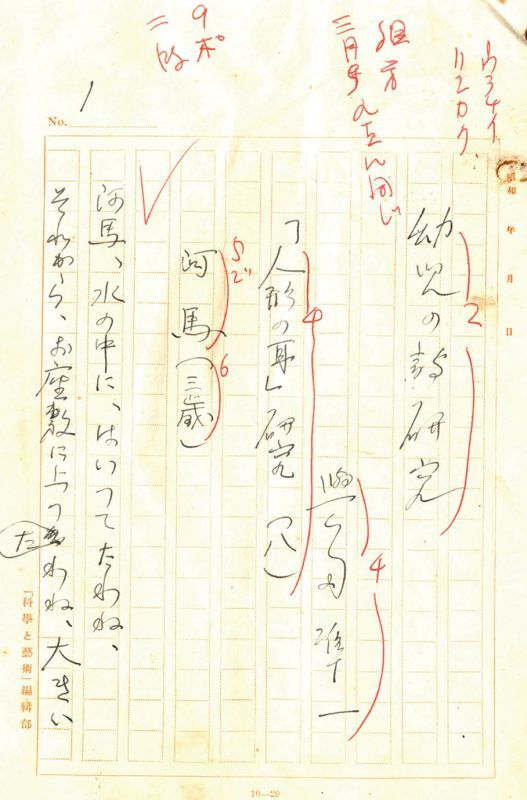 ハコカク
組方
三月号の
同じ
9ポ
二段
No. 1
昭和 年 月 日
幼児の詩研究
2
準一
4
「人形の耳」研究 (八)
4
河馬(三歳)
5ゴ
6
河馬、水の中に、はいつてたわね、
それから、お座敷に上つたわね、大きい
た
「科學と藝術」編輯部
10—20